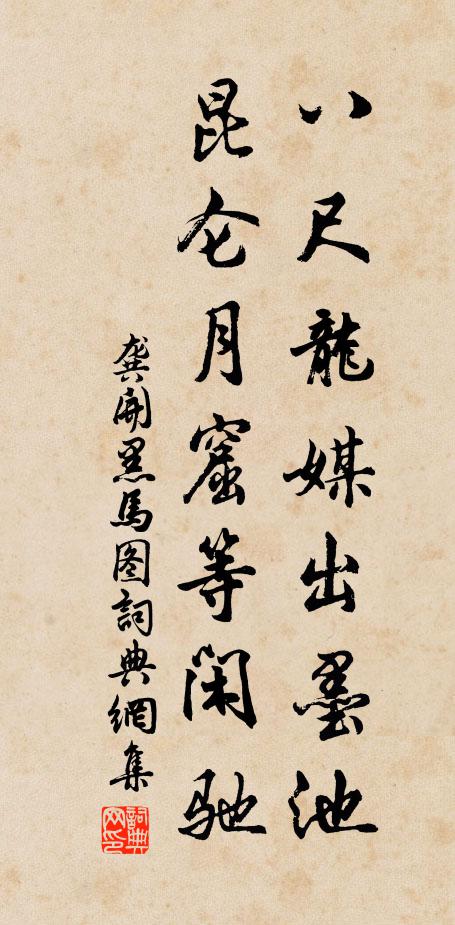 八尺龍媒出墨池
昆仑月窟等閑驰
龚開黑馬图詞典網集
詞典网印